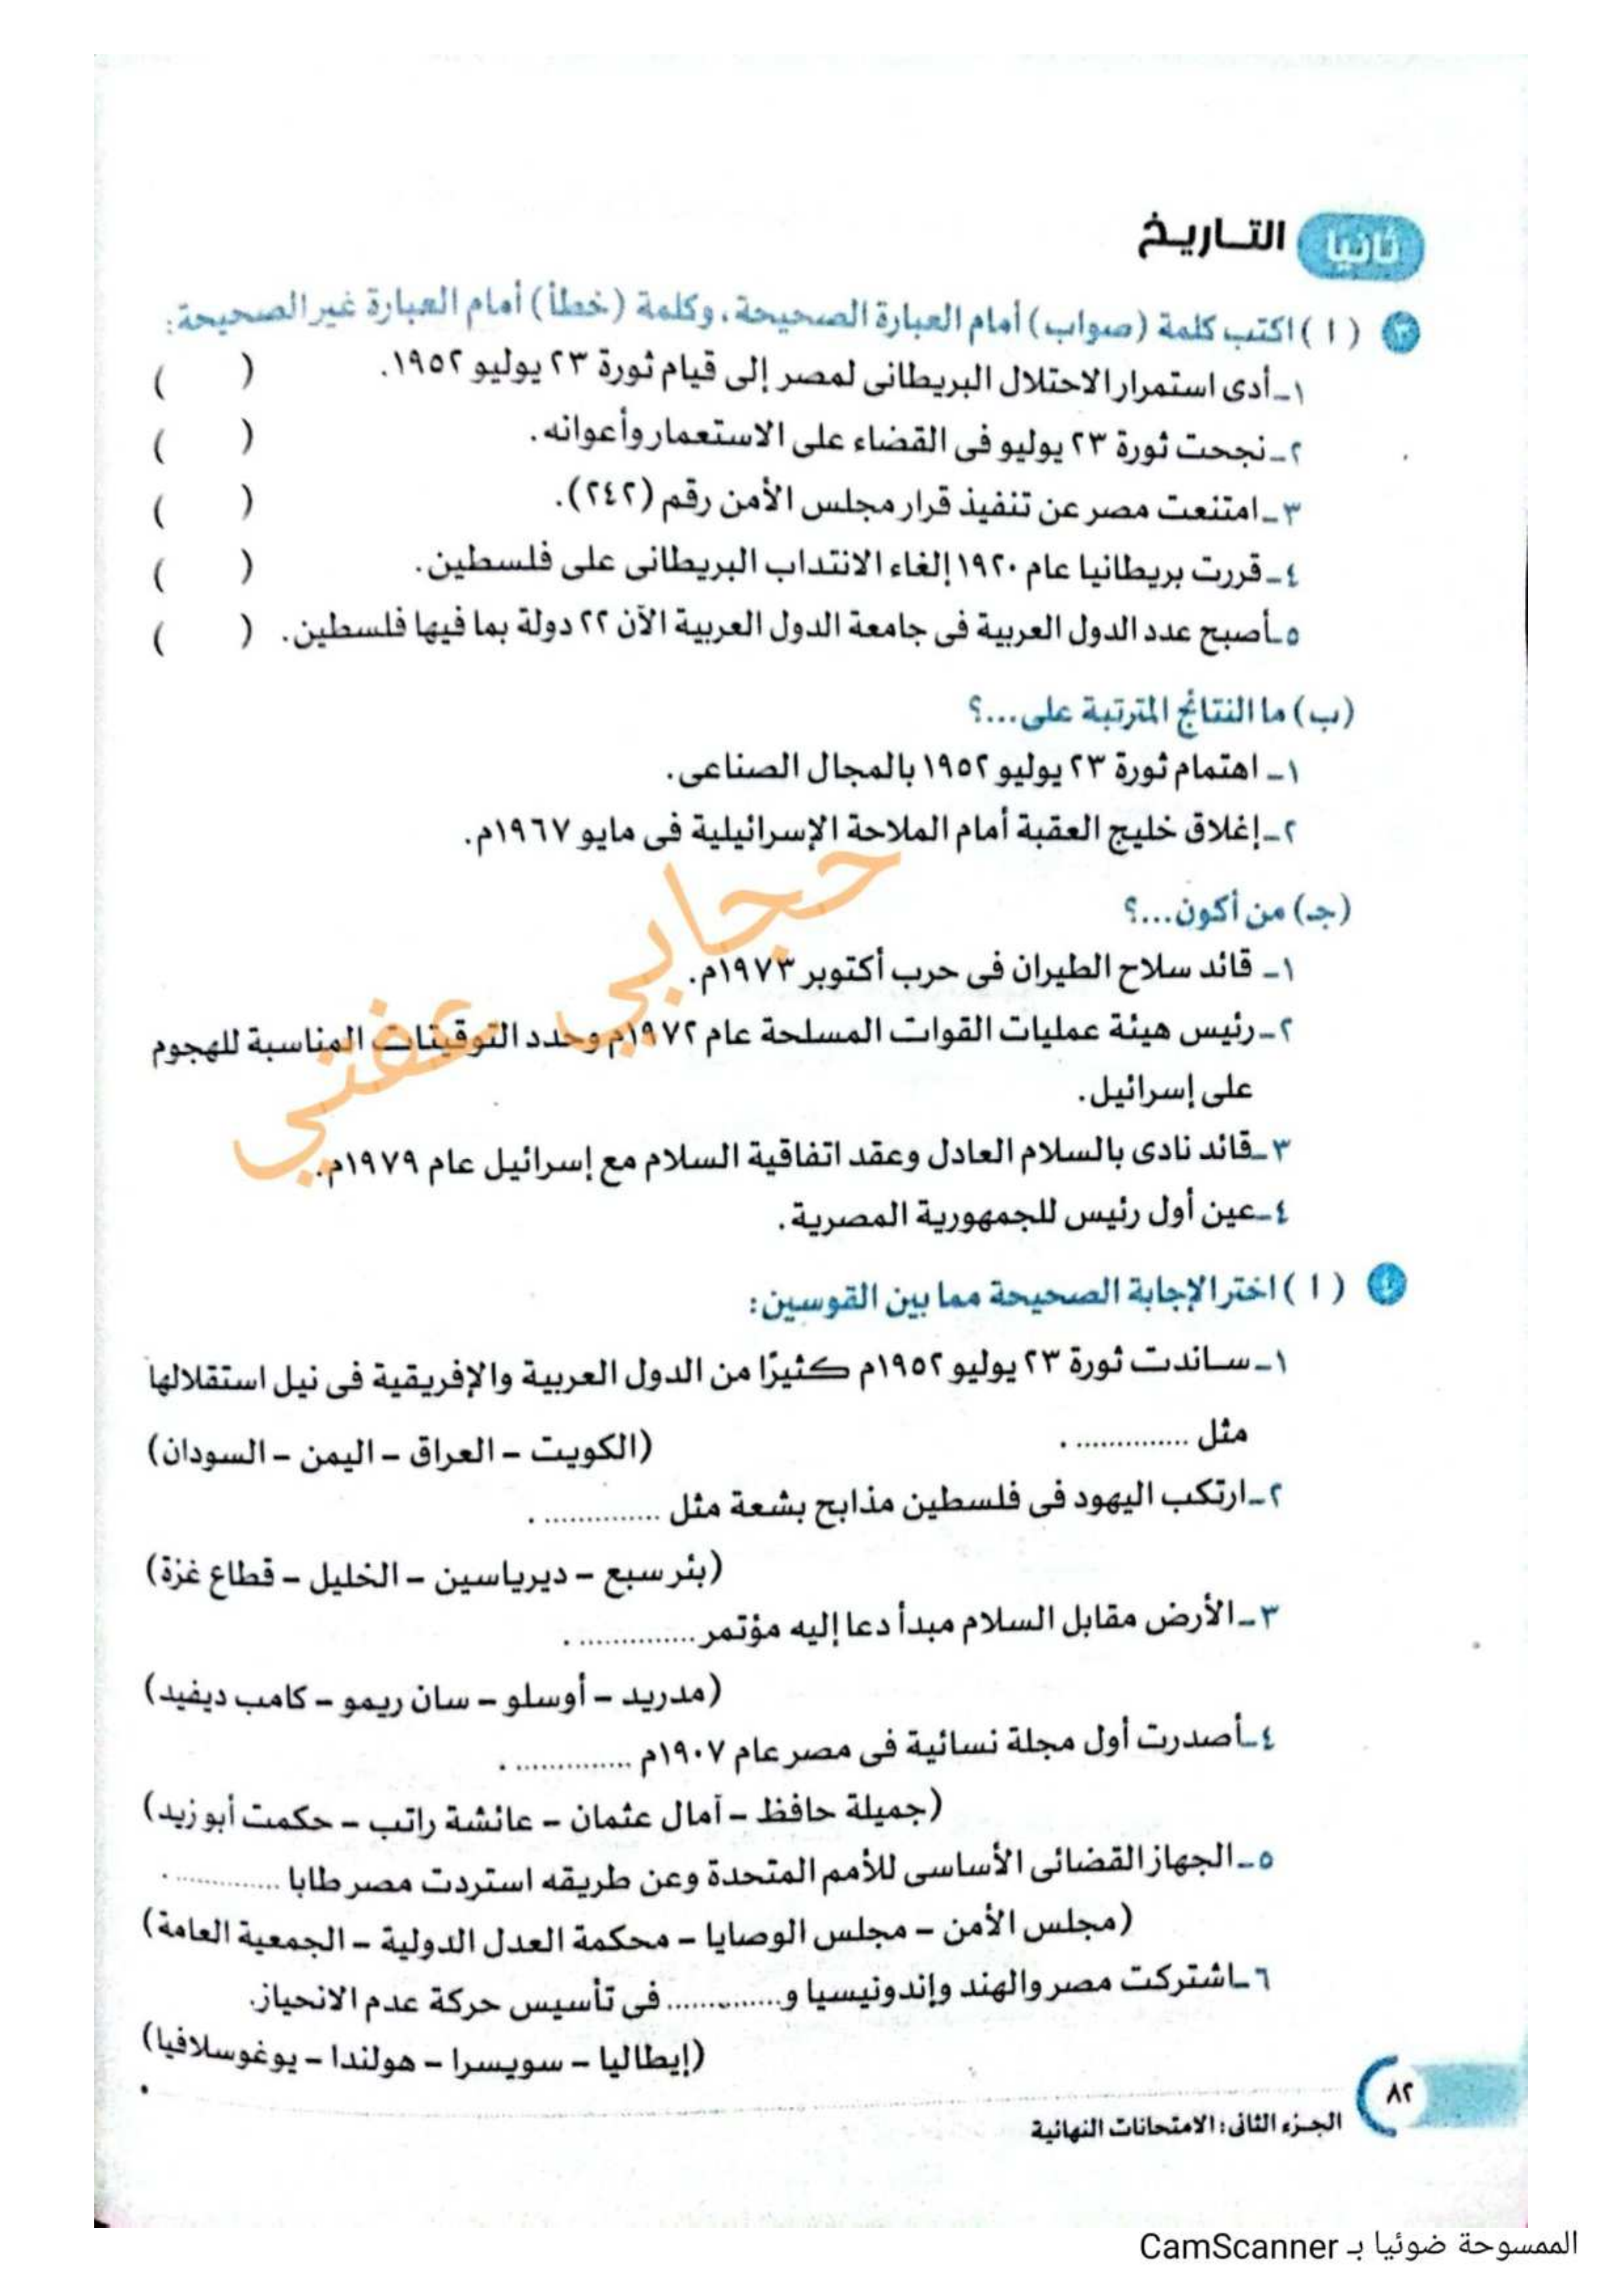 ثانيا التـاريـخ
٣ ( ا ) اكتب كلمة (صواب) أمام العبارة الصحيحة، وكلمة (خطأ) أمام العبارة غير الصحيحة:
١ـ أدى استمرار الاحتلال البريطانى لمصر إلى قيام ثورة ٢٣ يوليو ١٩٥٢. ( )
٢ـ نجحت ثورة ٢٣ يوليو فى القضاء على الاستعمار وأعوانه. ( )
٣ـ امتنعت مصر عن تنفيذ قرار مجلس الأمن رقم (٢٤٢). ( )
٤ـ قررت بريطانيا عام ١٩٢٠ إلغاء الانتداب البريطانى على فلسطين. ( )
٥ـ أصبح عدد الدول العربية فى جامعة الدول العربية الآن ٢٢ دولة بما فيها فلسطين. ( )
(ب) ما النتائج المترتبة على...؟
١ـ اهتمام ثورة ٢٣ يوليو ١٩٥٢ بالمجال الصناعى.
٢ـ إغلاق خليج العقبة أمام الملاحة الإسرائيلية فى مايو ١٩٦٧م.
(جـ) من أكون...؟
١ـ قائد سلاح الطيران فى حرب أكتوبر ١٩٧٣م.
٢ـ رئيس هيئة عمليات القوات المسلحة عام ١٩٧٢م وحدد التوقيتات المناسبة للهجوم
على إسرائيل.
٣ـ قائد نادى بالسلام العادل وعقد اتفاقية السلام مع إسرائيل عام ١٩٧٩م.
٤ـ عين أول رئيس للجمهورية المصرية.
حجابي عفتي
٤ ( ا ) اختر الإجابة الصحيحة مما بين القوسين:
١ـ ساندت ثورة ٢٣ يوليو ١٩٥٢م كثيرًا من الدول العربية والإفريقية فى نيل استقلالها
مثل .............. . (الكويت – العراق – اليمن – السودان)
٢ـ ارتكب اليهود فى فلسطين مذابح بشعة مثل .............. .
(بئر سبع – ديرياسين – الخليل – قطاع غزة)
٣ـ الأرض مقابل السلام مبدأ دعا إليه مؤتمر .............. .
(مدريد – أوسلو – سان ريمو – كامب ديفيد)
٤ـ أصدرت أول مجلة نسائية فى مصر عام ١٩٠٧م .............. .
(جميلة حافظ – آمال عثمان – عائشة راتب – حكمت أبو زيد)
٥ـ الجهاز القضائى الأساسى للأمم المتحدة وعن طريقه استردت مصر طابا .............. .
(مجلس الأمن – مجلس الوصايا – محكمة العدل الدولية – الجمعية العامة)
٦ـ اشتركت مصر والهند وإندونيسيا و .............. فى تأسيس حركة عدم الانحياز.
(إيطاليا – سويسرا – هولندا – يوغوسلافيا)
٨٢
الجـزء الثانى: الامتحانات النهائية
الممسوحة ضوئيا بـ CamScanner